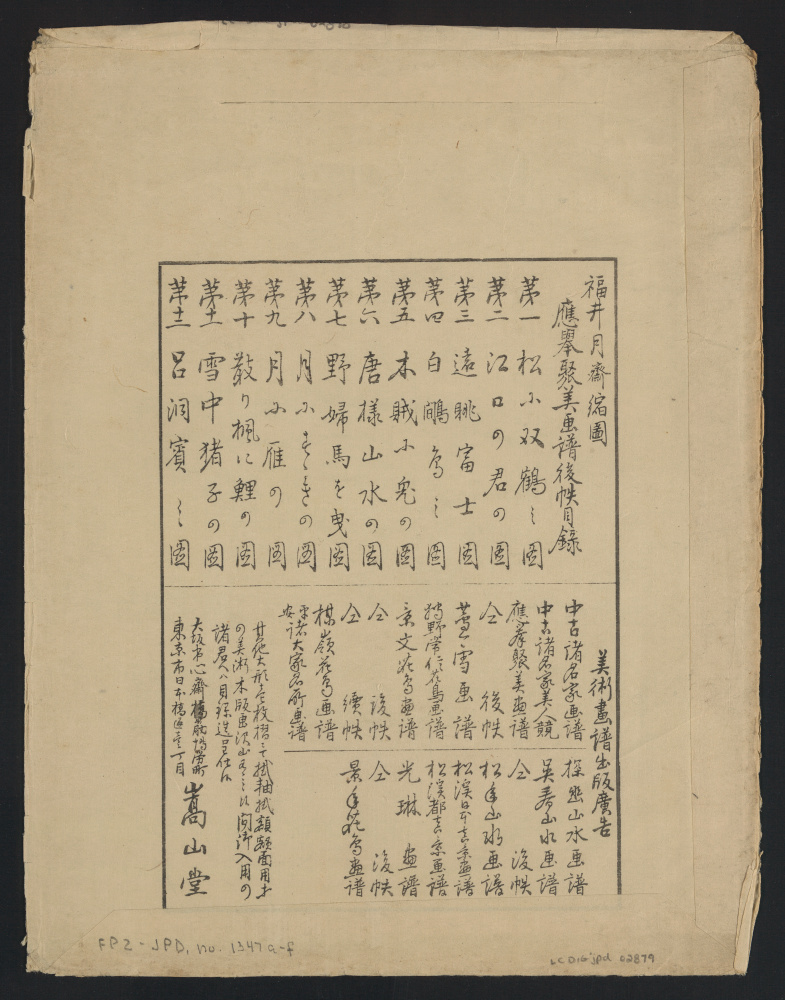 福井月齋縮圖
應擧聚美画譜後帙目録
第一 松に双鶴之圖
第二 江口の君の圖
第三 遠眺富士圖
第四 白鷴鳥之圖
第五 木賊に兎の圖
第六 唐様山水の圖
第七 野婦馬を曳圖
第八 月にすゝきの圖
第九 月に雁の圖
第十 散り楓に鯉の圖
第十一 雪中猪子の圖
第十二 呂洞賓之圖
美術畫譜出版廣告
中古諸名家画譜
中古諸名家美人競
應挙聚美画譜
仝 後帙
蘆雪画譜
狩野常信花鳥画譜
景文花鳥画譜
仝 後帙
仝 續帙
楳嶺花鳥画譜
平安諸大家名所画譜
探幽山水画譜
吳春山水画譜
仝 後帙
松年山水画譜
松渓日本真景画譜
松渓都真景画譜
光琳画譜
仝 後帙
景年花鳥画譜
其他大形壱枚摺ニ而掛軸扺額面用等
の美術木版画沢山有之候間御入用の
諸君ハ目録進呈仕候
大阪市心齋橋
東京市日本橋通壱丁目
嵩山堂
FP2-JPD, no. 1347 a-f
LC DIG jpd 02879